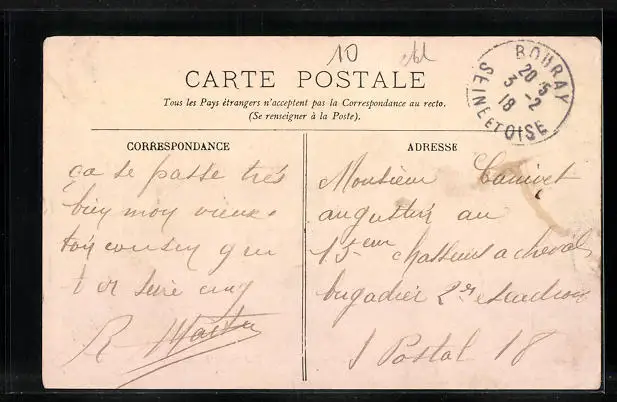 10
CARTE POSTALE
Tous les Pays étrangers n'acceptent pas la Correspondance au recto.
(Se renseigner à la Poste).
BOURAY
20*5
3 -2
18
SEINE ET OISE
CORRESPONDANCE
ça se passe très
bien mon vieux
ton cousin qui
R
ADRESSE
Monsieur Canivet
augustin au
15em chasseurs a cheval
brigadier 2e escadron
S Postal 18